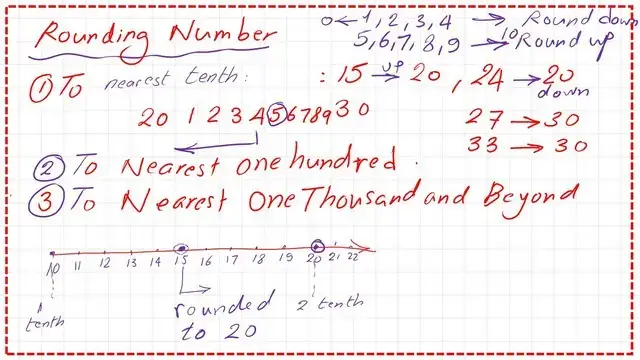 Rounding Number
0 ← 1, 2, 3, 4 → Round down
5, 6, 7, 8, 9 → 10 Round up
① To nearest tenth: : 15 up→ 20 , 24 → 20 down
20 1 2 3 4 ⑤ 6 7 8 9 30
27 → 30
33 → 30
② To Nearest one hundred.
③ To Nearest One Thousand and Beyond
10 11 12 13 14 15 16 17 18 19 20 21 22
1 tenth
rounded
to 20
2 tenth